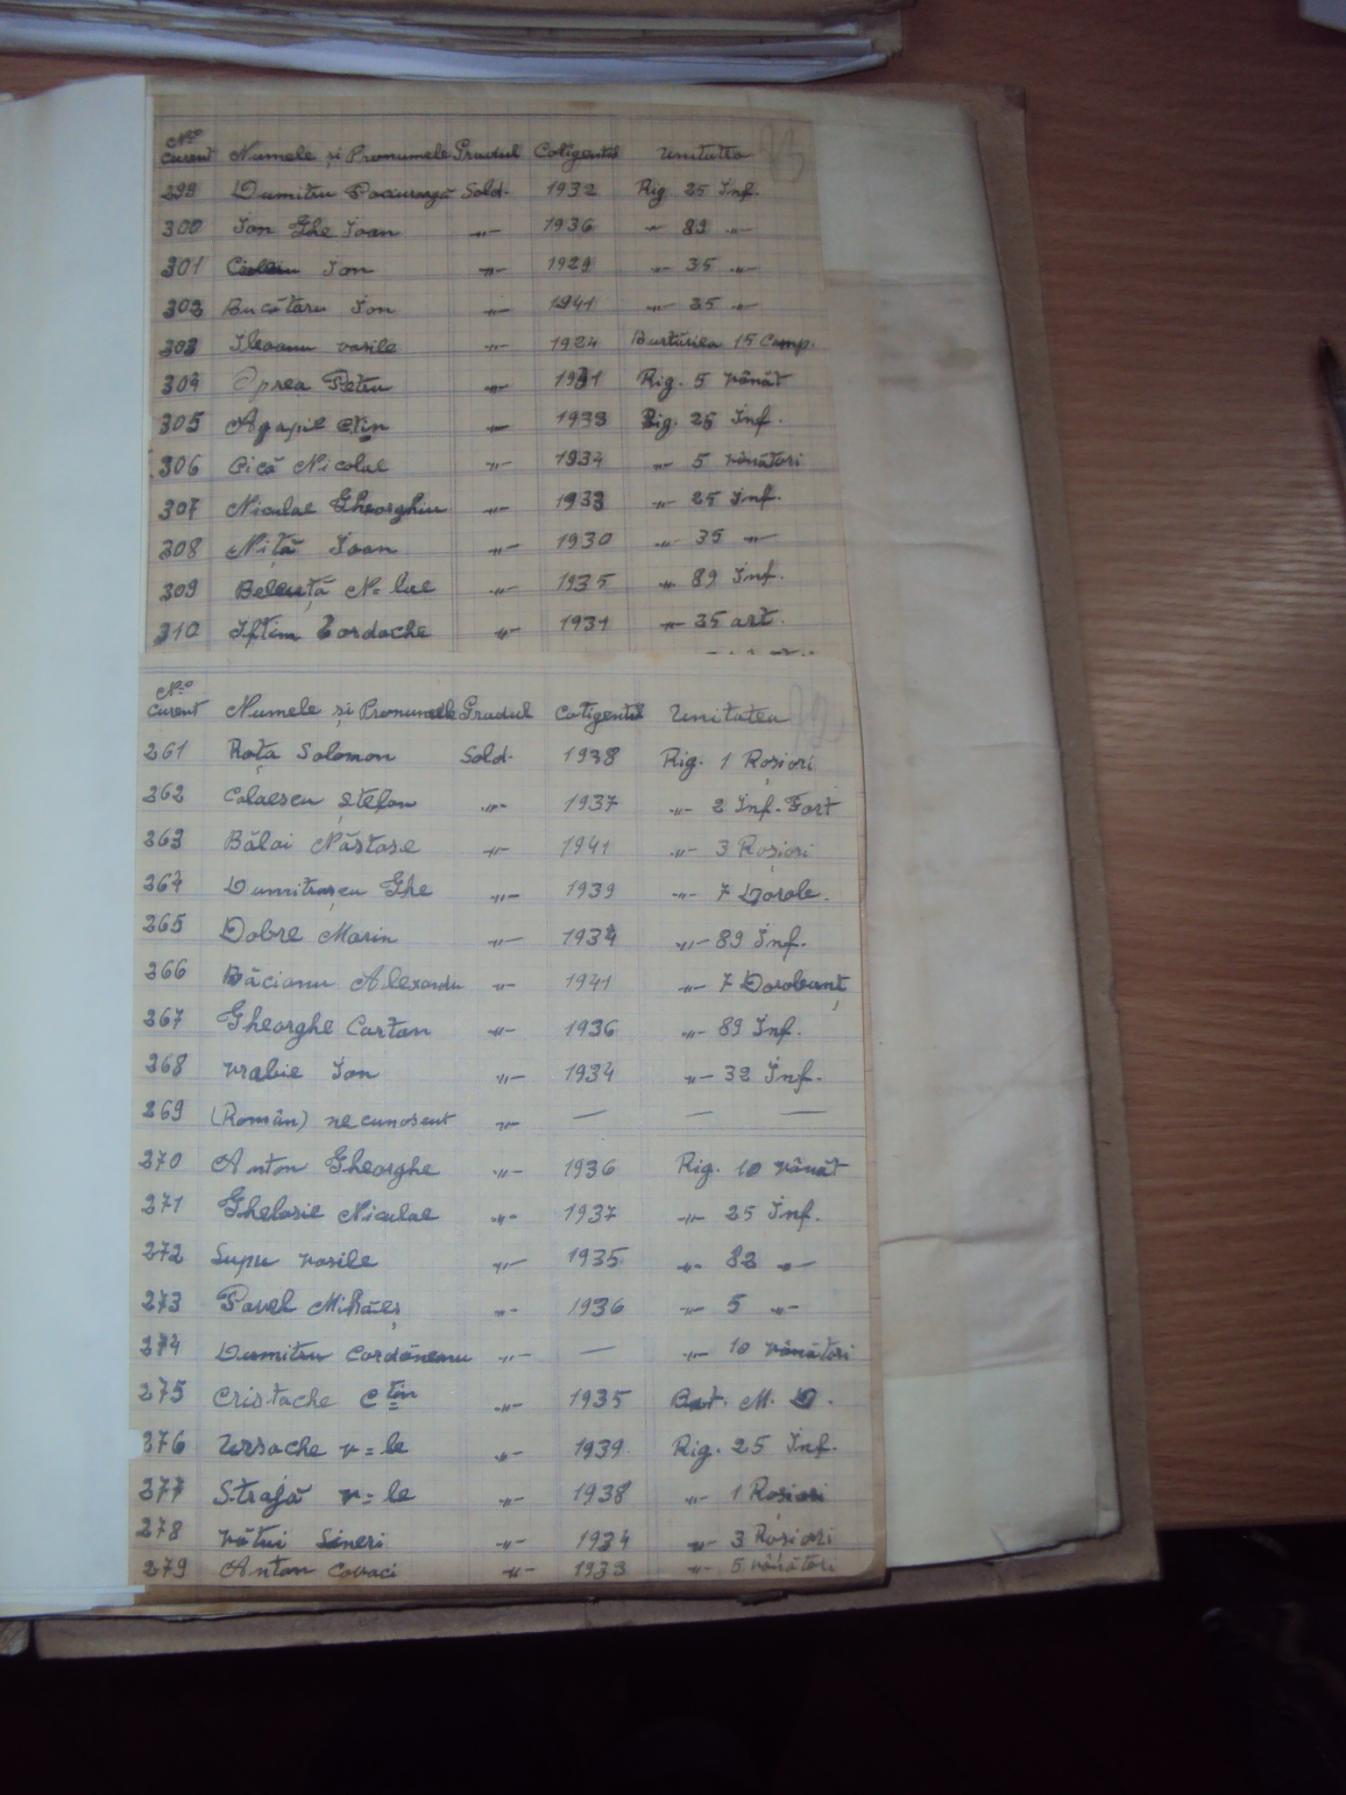 No
curent Numele și Pronumele Gradul Cotigentul Unitatea
299 Dumitru Sold. 1932 Rig. 25 Inf.
300 Ion Ghe Ioan -"- 1936 -"- 89 -"-
301 Ion -"- 1929 -"- 35 -"-
302 Bucătaru Ion -"- 1941 -"- 35 -"-
303 Ileanu vasile -"- 1924 15 Comp.
304 Oprea Petru -"- 1931 Rig. 5 vânăt
305 Agapie Ctin -"- 1933 Rig. 25 Inf.
306 Gică Nicolae -"- 1934 -"- 5 vânători
307 Niculae Gheorghiu -"- 1933 -"- 25 Inf.
308 Niță Ioan -"- 1930 -"- 35 -"-
309 Beleuță N=lae -"- 1935 -"- 89 Inf.
310 Iftim Iordache -"- 1931 -"- 35 art.
No
curent Numele și Pronumele Gradul Cotigentul Unitatea
261 Roța Solomon Sold. 1938 Rig. 1 Roșiori
262 Colaescu Ștefan -"- 1937 -"- 2 Inf. Fort
263 Bălai Năstase -"- 1941 -"- 3 Roșiori
264 Dumitrașcu Ghe -"- 1939 -"- 7 Dorob.
265 Dobre Marin -"- 1934 -"- 89 Inf.
266 Băcianu Alexandu -"- 1941 -"- 7 Dorobanț
267 Gheorghe Cartan -"- 1936 -"- 89 Inf.
268 vrabie Ion -"- 1934 -"- 32 Inf.
269 (Român) necunoscut -"- — — —
270 Anton Gheorghe -"- 1936 Rig. 10 vânăt
271 Ghelasie Niculae -"- 1937 -"- 25 Inf.
272 Lupu vasile -"- 1935 -"- 82 -"-
273 Pavel Mihăeș -"- 1936 -"- 5 -"-
274 Dumitru Cordăneanu -"- — -"- 10 vânători
275 Cristache Ctin -"- 1935 Bat. M. D.
276 Ursache v=le -"- 1939 Rig. 25 Inf.
277 Strajă v=le -"- 1938 -"- 1 Roșiori
278 vătui Sineri -"- 1934 -"- 3 Roșiori
279 Anton Covaci -"- 1933 -"- 5 vânători